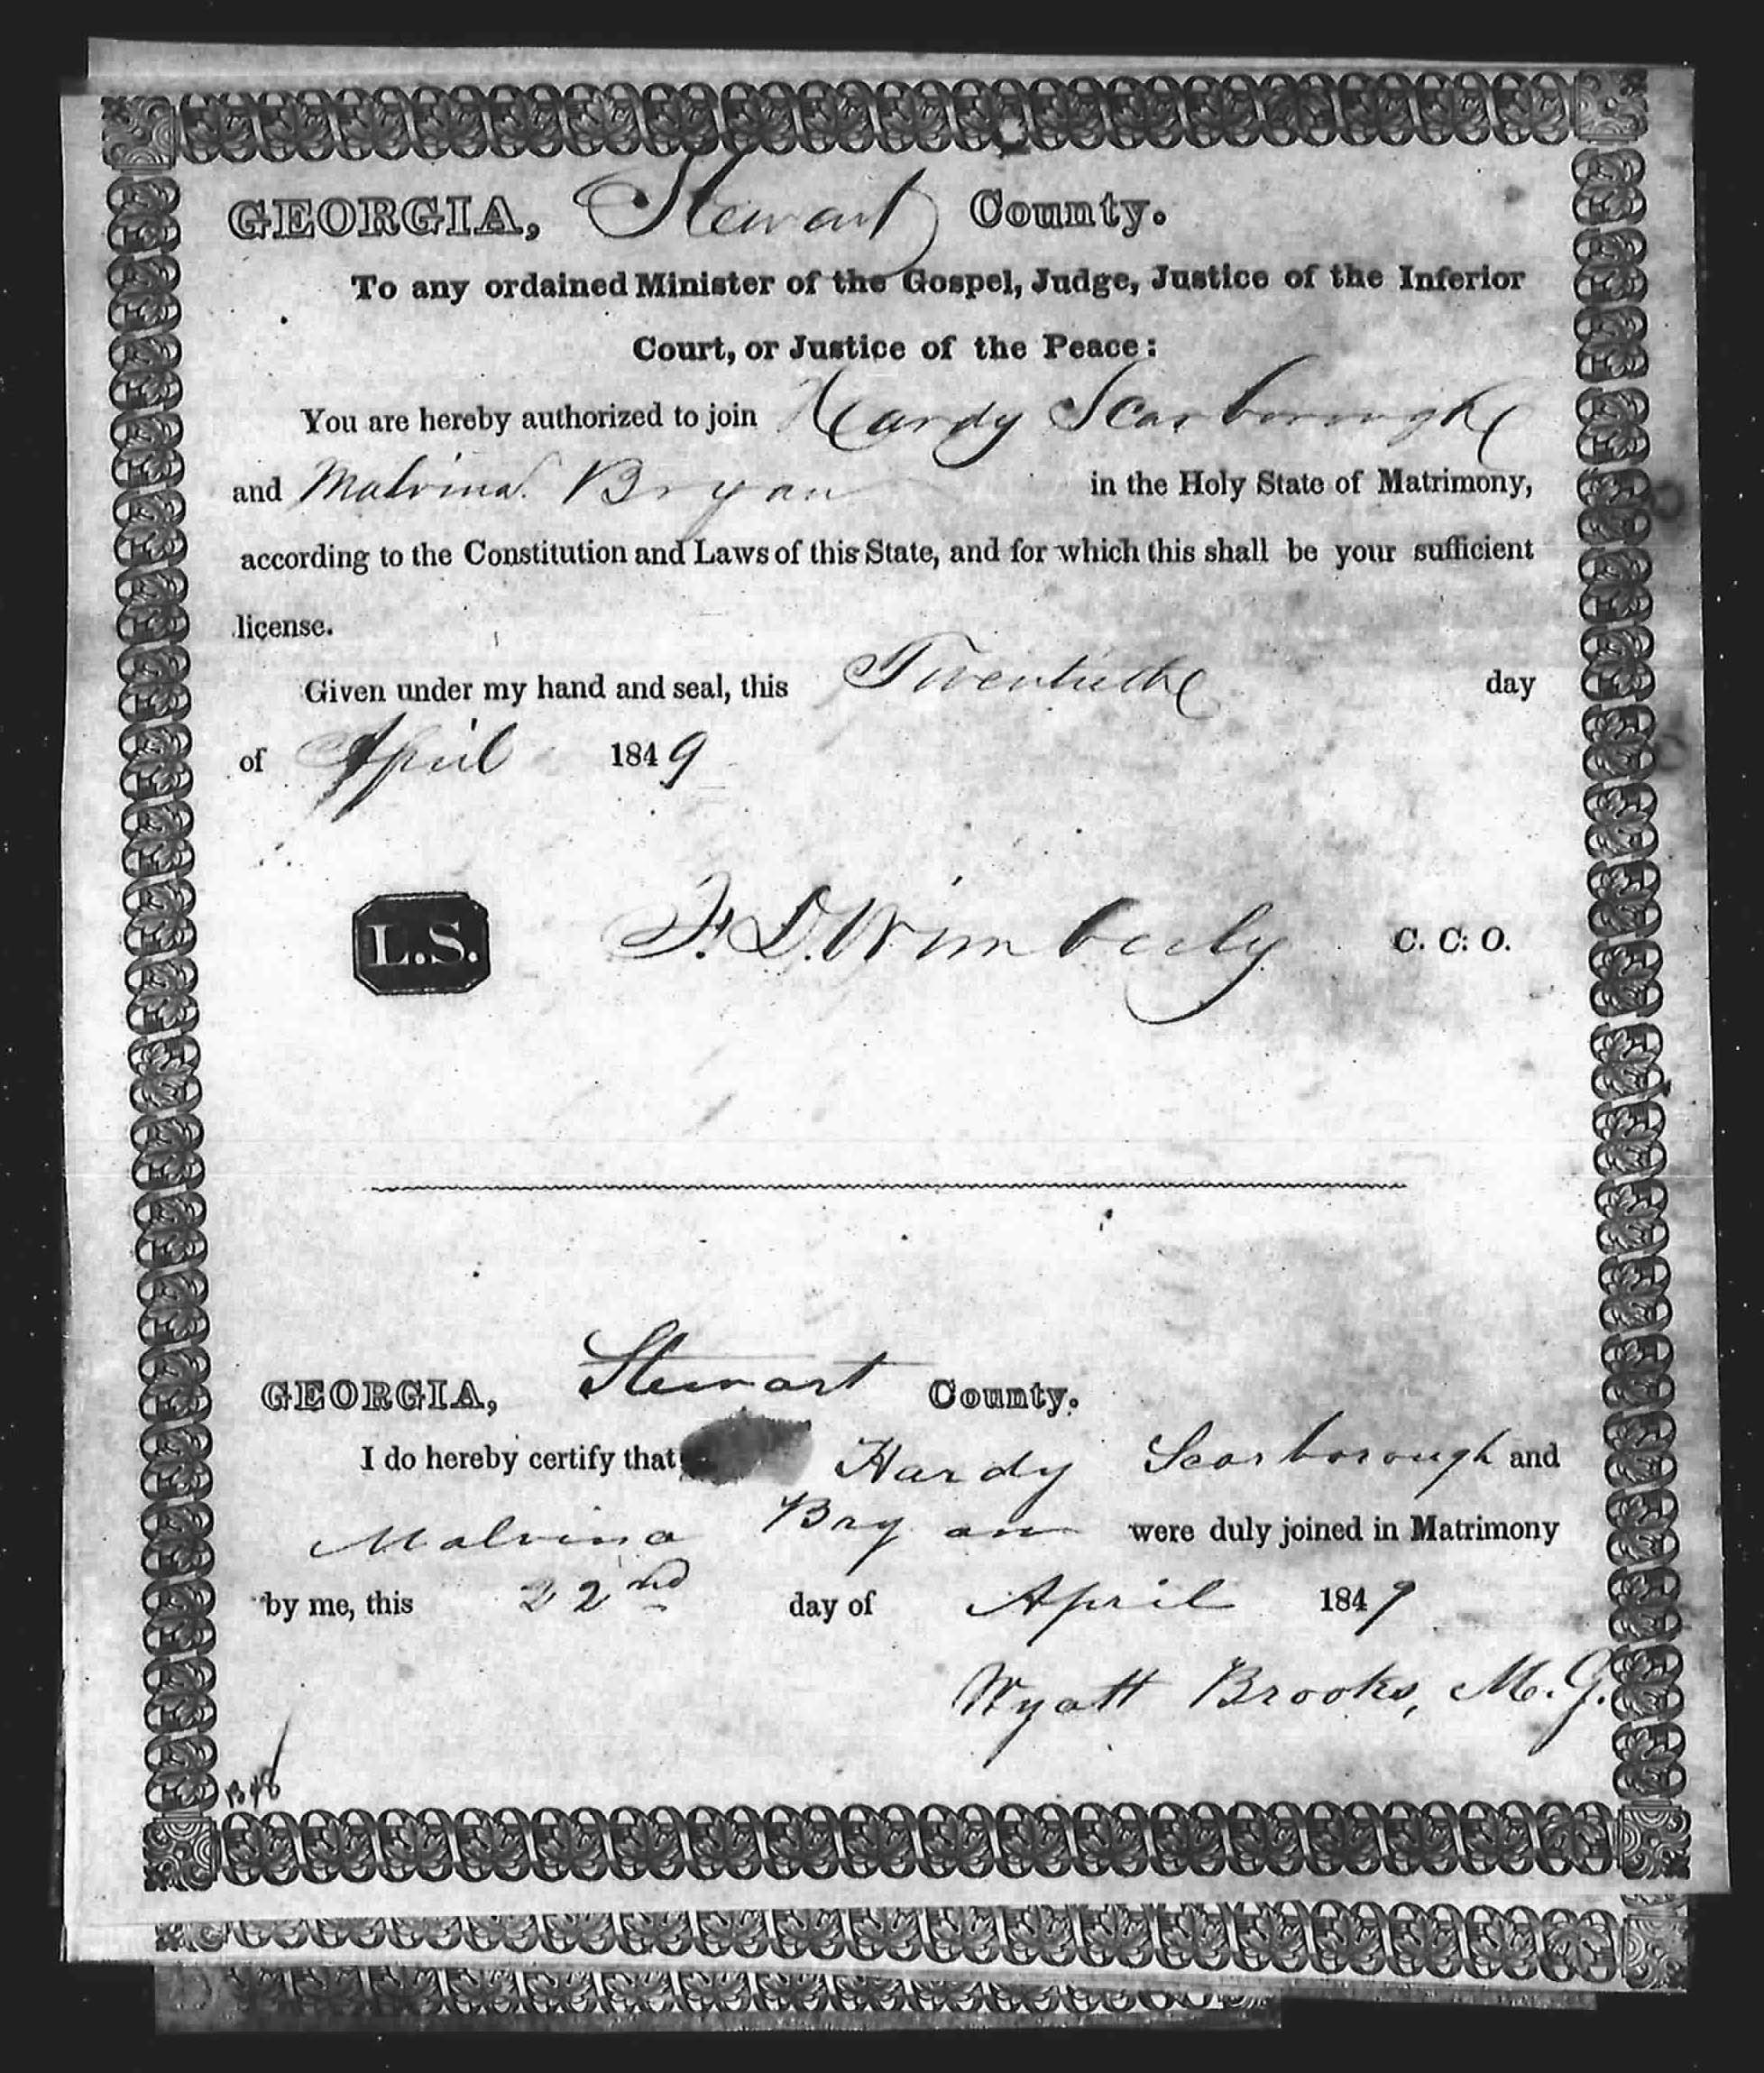 GEORGIA, Stewart County.
To any ordained Minister of the Gospel, Judge, Justice of the Inferior
Court, or Justice of the Peace:
You are hereby authorized to join Hardy Scarborough
and Malvina Bryan in the Holy State of Matrimony,
according to the Constitution and Laws of this State, and for which this shall be your sufficient
license.
Given under my hand and seal, this Twentieth day
of April 1849
L.S. J. D. Wimberly C. C. O.
GEORGIA, Stewart County.
I do hereby certify that Hardy Scarborough and
Malvina Bryan were duly joined in Matrimony
by me, this 22nd day of April 1849
Wyatt Brooks, M. G.